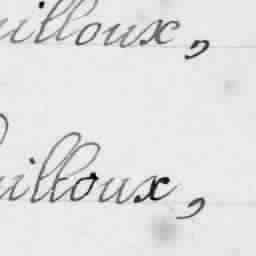 uilloux,
uilloux,